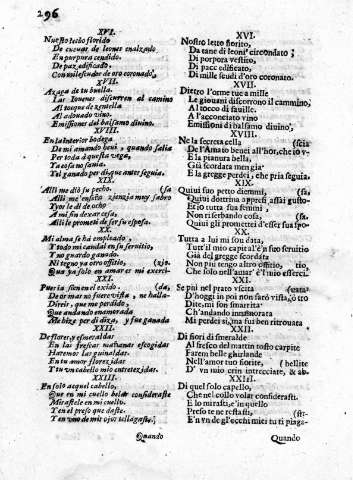 296
XVI.
Nuestro lecho florido
De cueuas de leones enlazado,
En porpura tendido,
De paz edificado,
Con mil escudos de oro coronado.
XVII.
A zaga de tu huella.
Las Iouenes discurren al camino
Al toque de centella
Al adouado vino.
Emissiones del balsamo divino.
XVIII.
En la interior bodega
De mi amando beui, quando salia
Por toda questa vega,
Ya cosa no sania.
Tel ganado perdi que antes seguia.
XIX.
Alli me diò su pecho. (sa
Alli me enseño zienzia muy sabro
Yyo le di de echo
A mi sin dexar cosa,
Alli le prometi de ser su esposa.
XX.
Mi alma se ha empleado,
Y todo mi caudal en su seruitio,
Y no guardo ganado
Ni tengo ya otro offitio, (zio.
Que ya solo en amar es mi exerci-
XXI.
Pues ia si en el exido (da,
De or mas no fuere vista, ne halla-
Direis, que me perdido,
Que andando enamorada
Me hize perdidiza, y fue ganada
XXII.
De flores, y esmeraldas
En las frescas mañanas escogidas
Haremos las guinaldas.
En tu amor floreçidas
Y en vn cabello mio entretexidas.
XXIII.
En solo acquel cabello,
Que en mi cuello bolar consideraste
Mirastele en mi cuello.
Y en el preso quedaste.
Y en vno de mis ojos te llagaste.
Quando
XVI.
Nostro letto fiorito,
Da tane di leoni circondato;
Di porpora vestito,
Di pace edificato,
Di mille scudi d'oro coronato.
XVII.
Dietro l'orme tue a mille
Le giouani discorrono il cammino,
Al tocco di fauille.
A l'acconciato vino
Emissioni di balsamo divino.
XVIII.
Ne la secreta cella (scia
De l'Amato beuei all'hor, che io v-
E la pianura bella,
Già scordata mengia
E la gregge perdei, che pria seguia
XIX.
Quiui suo petto diemmi, (sa
Quiui dottrina appresi assai gusto-
Et io tutta sua femmi,
Non riserbando cosa,
Quiui gli promettei d'esser sua spo-
XX.
Tutta a lui mi son data,
Tutt'il mio capital è'n suo seruitio
Già del gregge scordata
Non più tengo altro offitio, tio
Che solo nell'amar' è'l mio esserci.
XXI.
Se più nel prato vscita (eata
D'hoggi in poi non sarò vista, ò tro
Dite, mi son smarrita
Ch'andando innamorata
Mi perdei sì, ma fui ben ritrouata
XXII.
Di fiori di esmeralde
Al fresco del mattin tosto carpite
Farem belle ghirlande
Nell'amor tuo fiorite, (bellite
D' vn mio crin intrecciate, & ab-
XXIII.
Di quel solo capello,
Che nel collo volar considerasti.
E lo mirasti, e'in quello
Preso te ne restasti, (sti-
E'n vn de gl'occhi miei tu ti piaga-
Quando